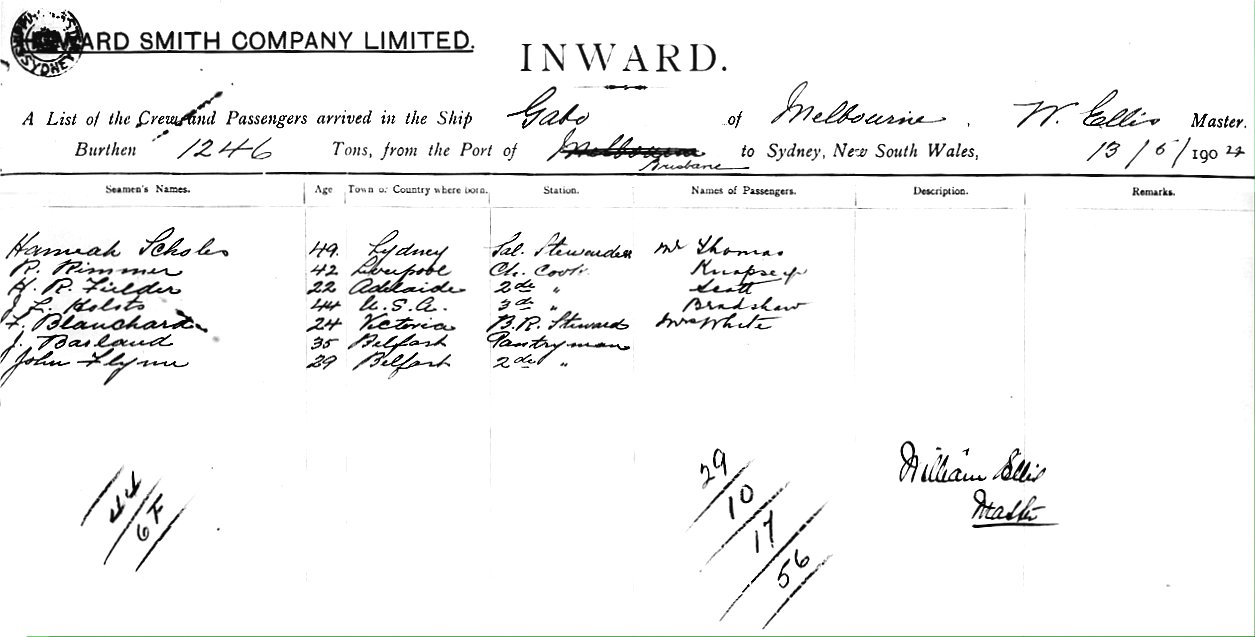 WARD SMITH COMPANY LIMITED.
SYDNEY
INWARD.
A List of the Crew and Passengers arrived in the Ship Gabo of Melbourne. W. Ellis Master.
Burthen 1246 Tons, from the Port of Melbourne Brisbane to Sydney, New South Wales, 13/5/1904
Seamen's Names. Age Town or Country where born. Station. Names of Passengers. Description. Remarks.
Hannah Scholes 49 Sydney Sal. Stewardess Mr Thomas
R. Rimmer 42 Liverpool Ch. Cook
H. R. Fielder 22 Adelaide 2de " Scott
J. L. Holsts 44 U.S.A. 3d " Bradshaw
F. Blanchard 24 Victoria B.R. Steward Mrs White
J. Barland 35 Belfast Pantryman
John Flynn 29 Belfast 2de "
44
6F
29
10
17
56
William Ellis
Master